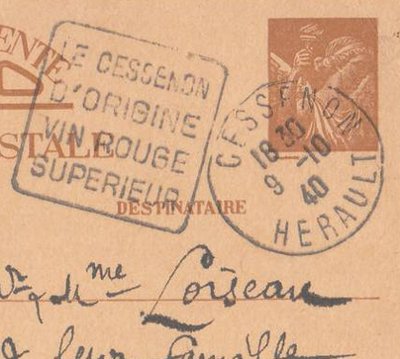 ENTE
LE CESSENON
D'ORIGINE
VIN ROUGE
SUPERIEUR
CESSENON
18 30
9-10
40
HERAULT
STALE
DESTINATAIRE
Mr & Mme Loiseau
& leur famille